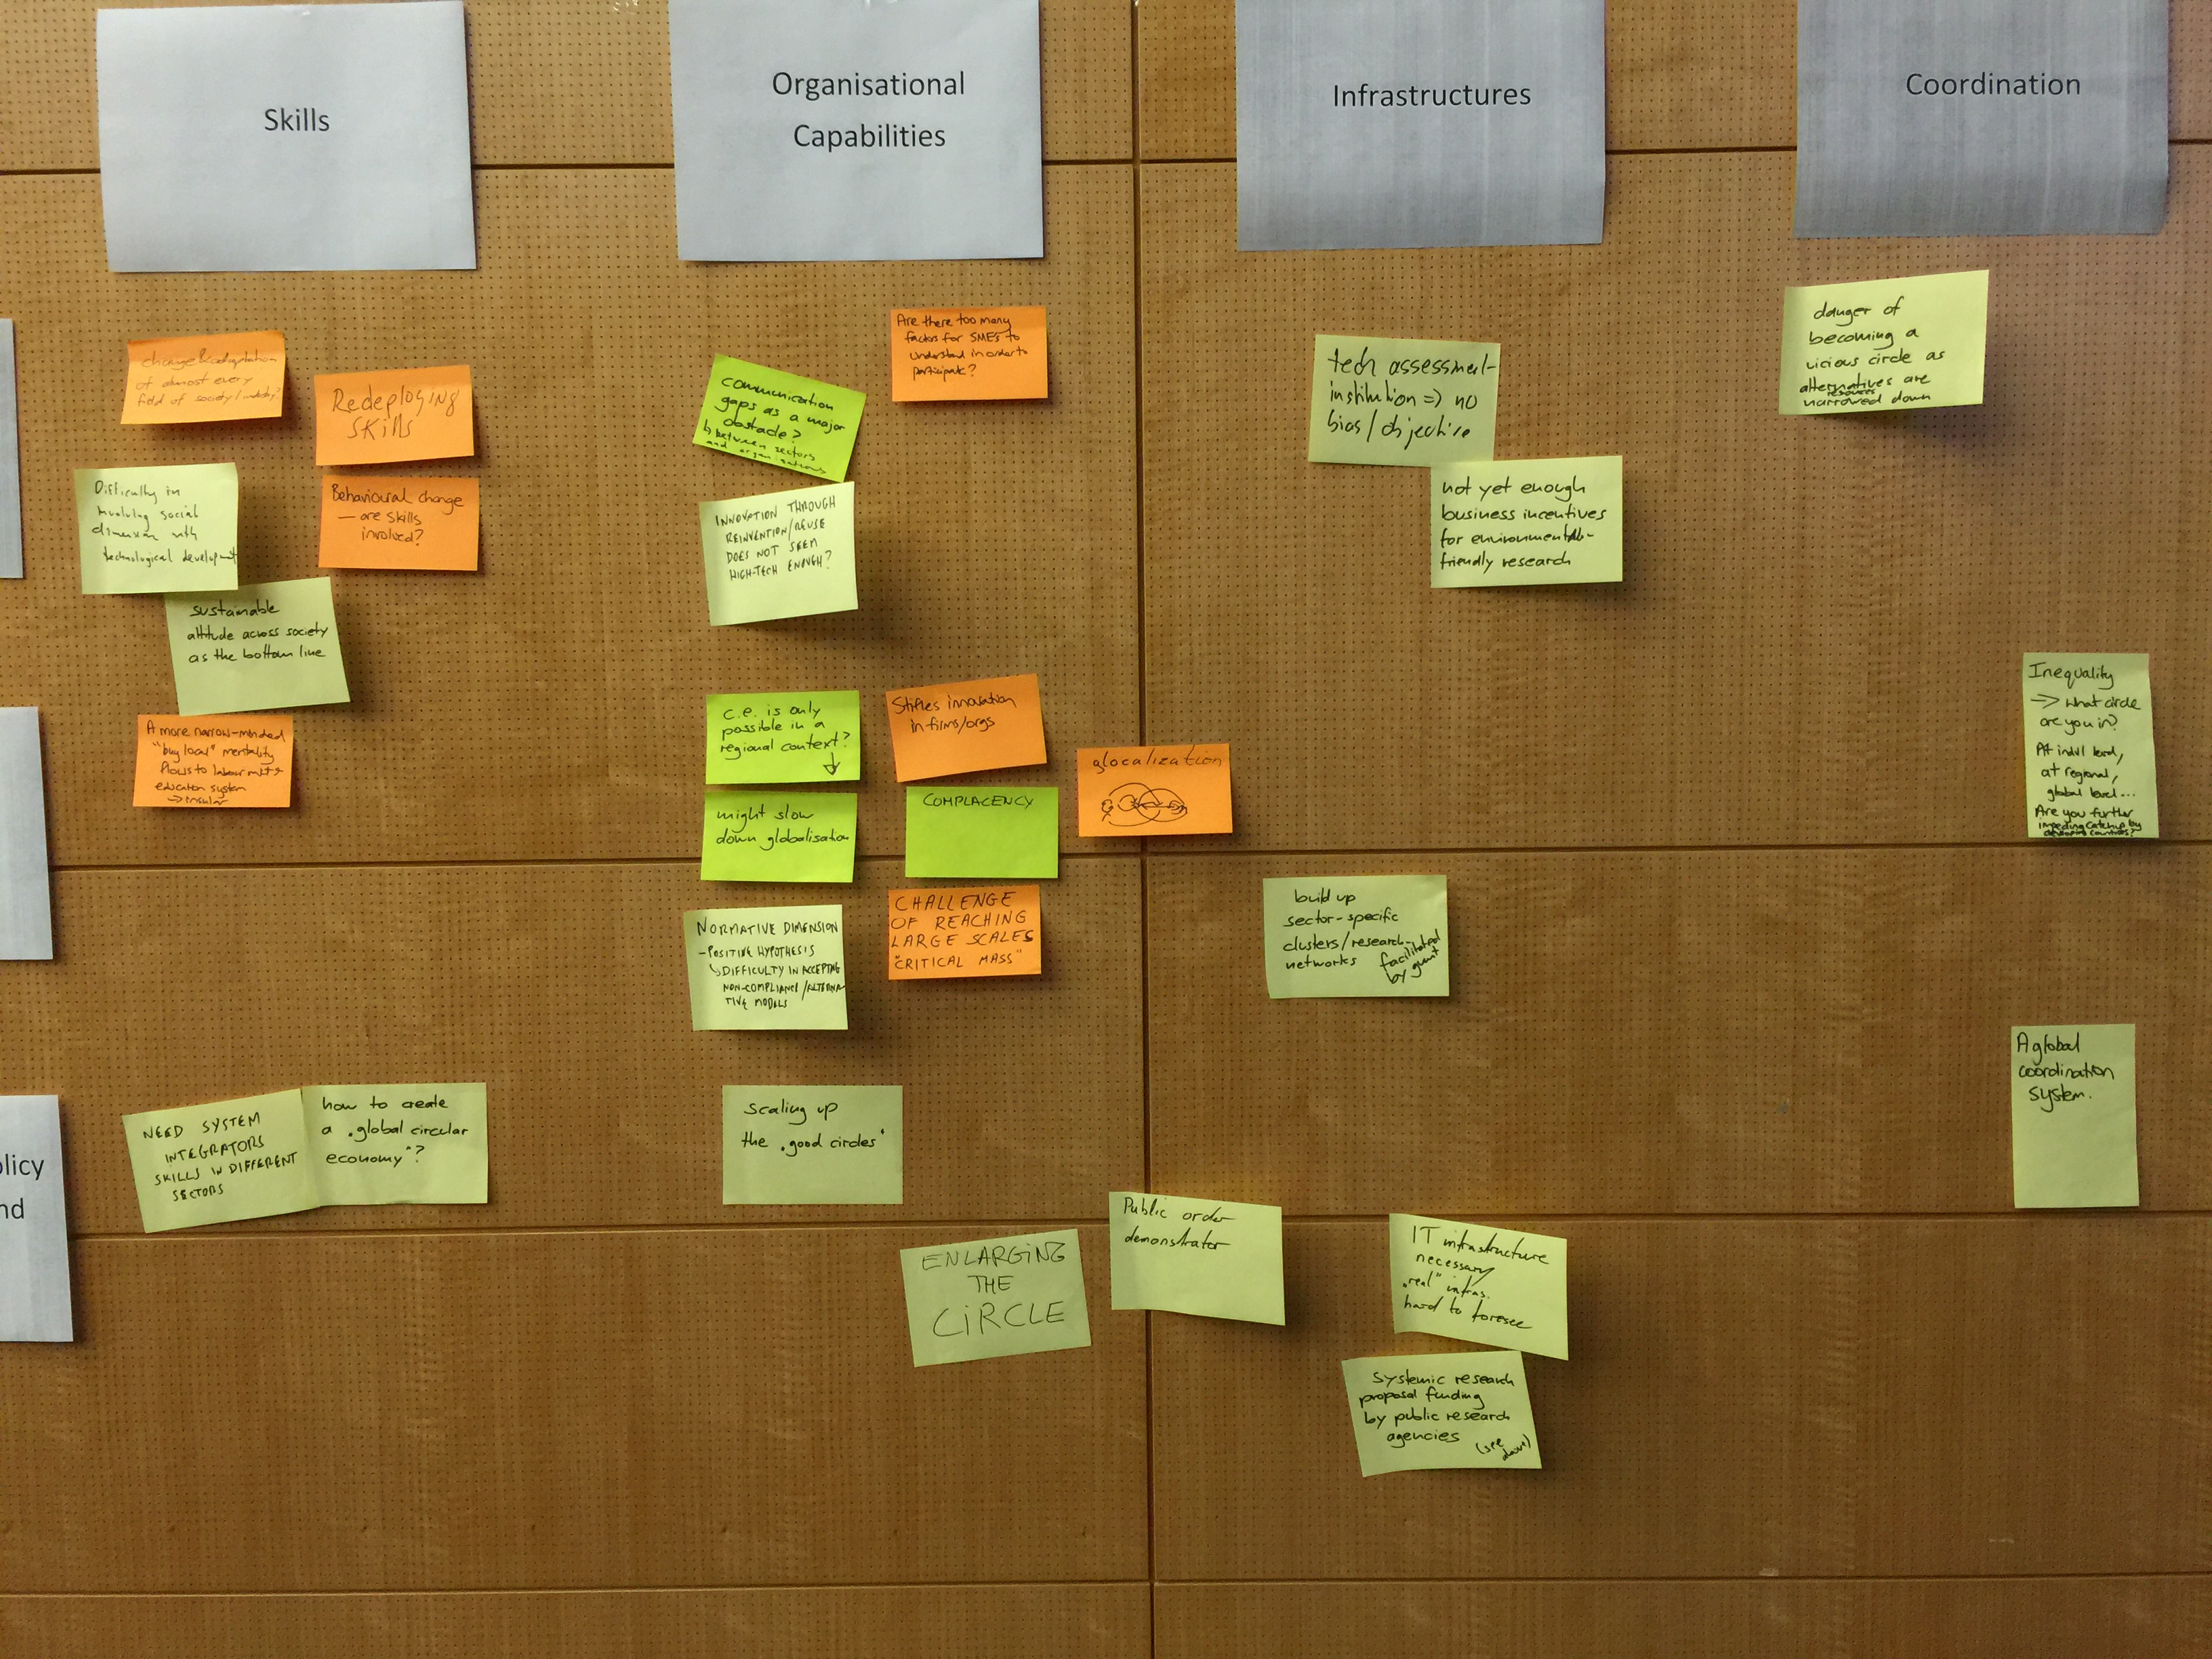 Skills
Organisational
Capabilities
Infrastructures
Coordination
change & adaptation
of almost every
field of society / industry?
Redeploying
Skills
Difficulty in
involving social
dimension with
technological development
Behavioural change
— are skills
involved?
sustainable
attitude across society
as the bottom line
A more narrow-minded
"buy local" mentality
flows to labour mkt &
education system
→ insular
NEED SYSTEM
INTEGRATORS
SKILLS IN DIFFERENT
SECTORS
how to create
a „global circular
economy"?
Are there too many
factors for SME's to
understand in order to
participate?
communication
gaps as a major
obstacle?
↳ between sectors
and organisations
INNOVATION THROUGH
REINVENTION/REUSE
DOES NOT SEEM
HIGH-TECH ENOUGH?
c.e. is only
possible in a
regional context?
↓
Stifles innovation
in firms/orgs
glocalization
might slow
down globalisation
COMPLACENCY
NORMATIVE DIMENSION
- POSITIVE HYPOTHESIS
↳ DIFFICULTY IN ACCEPTING
NON-COMPLIANCE/ALTERNA-
TIVE MODELS
CHALLENGE
OF REACHING
LARGE SCALES
"CRITICAL MASS"
scaling up
the „good circles"
ENLARGING
THE
CIRCLE
Public order
demonstrator
tech assessment-
institution => no
bias / objective
not yet enough
business incentives
for environmental-
friendly research
build up
sector-specific
clusters/research-
networks facilitated
by gvmt
IT infrastructure
necessary
„real" infras.
hard to foresee
Systemic research
proposal funding
by public research
agencies
(see above)
danger of
becoming a
vicious circle as
alternatives are
resources
narrowed down
Inequality
→ what circle
are you in?
At indvl level,
at regional,
global level...
Are you further
impeding catchup by
developing countries?
A global
coordination
system.
olicy
nd